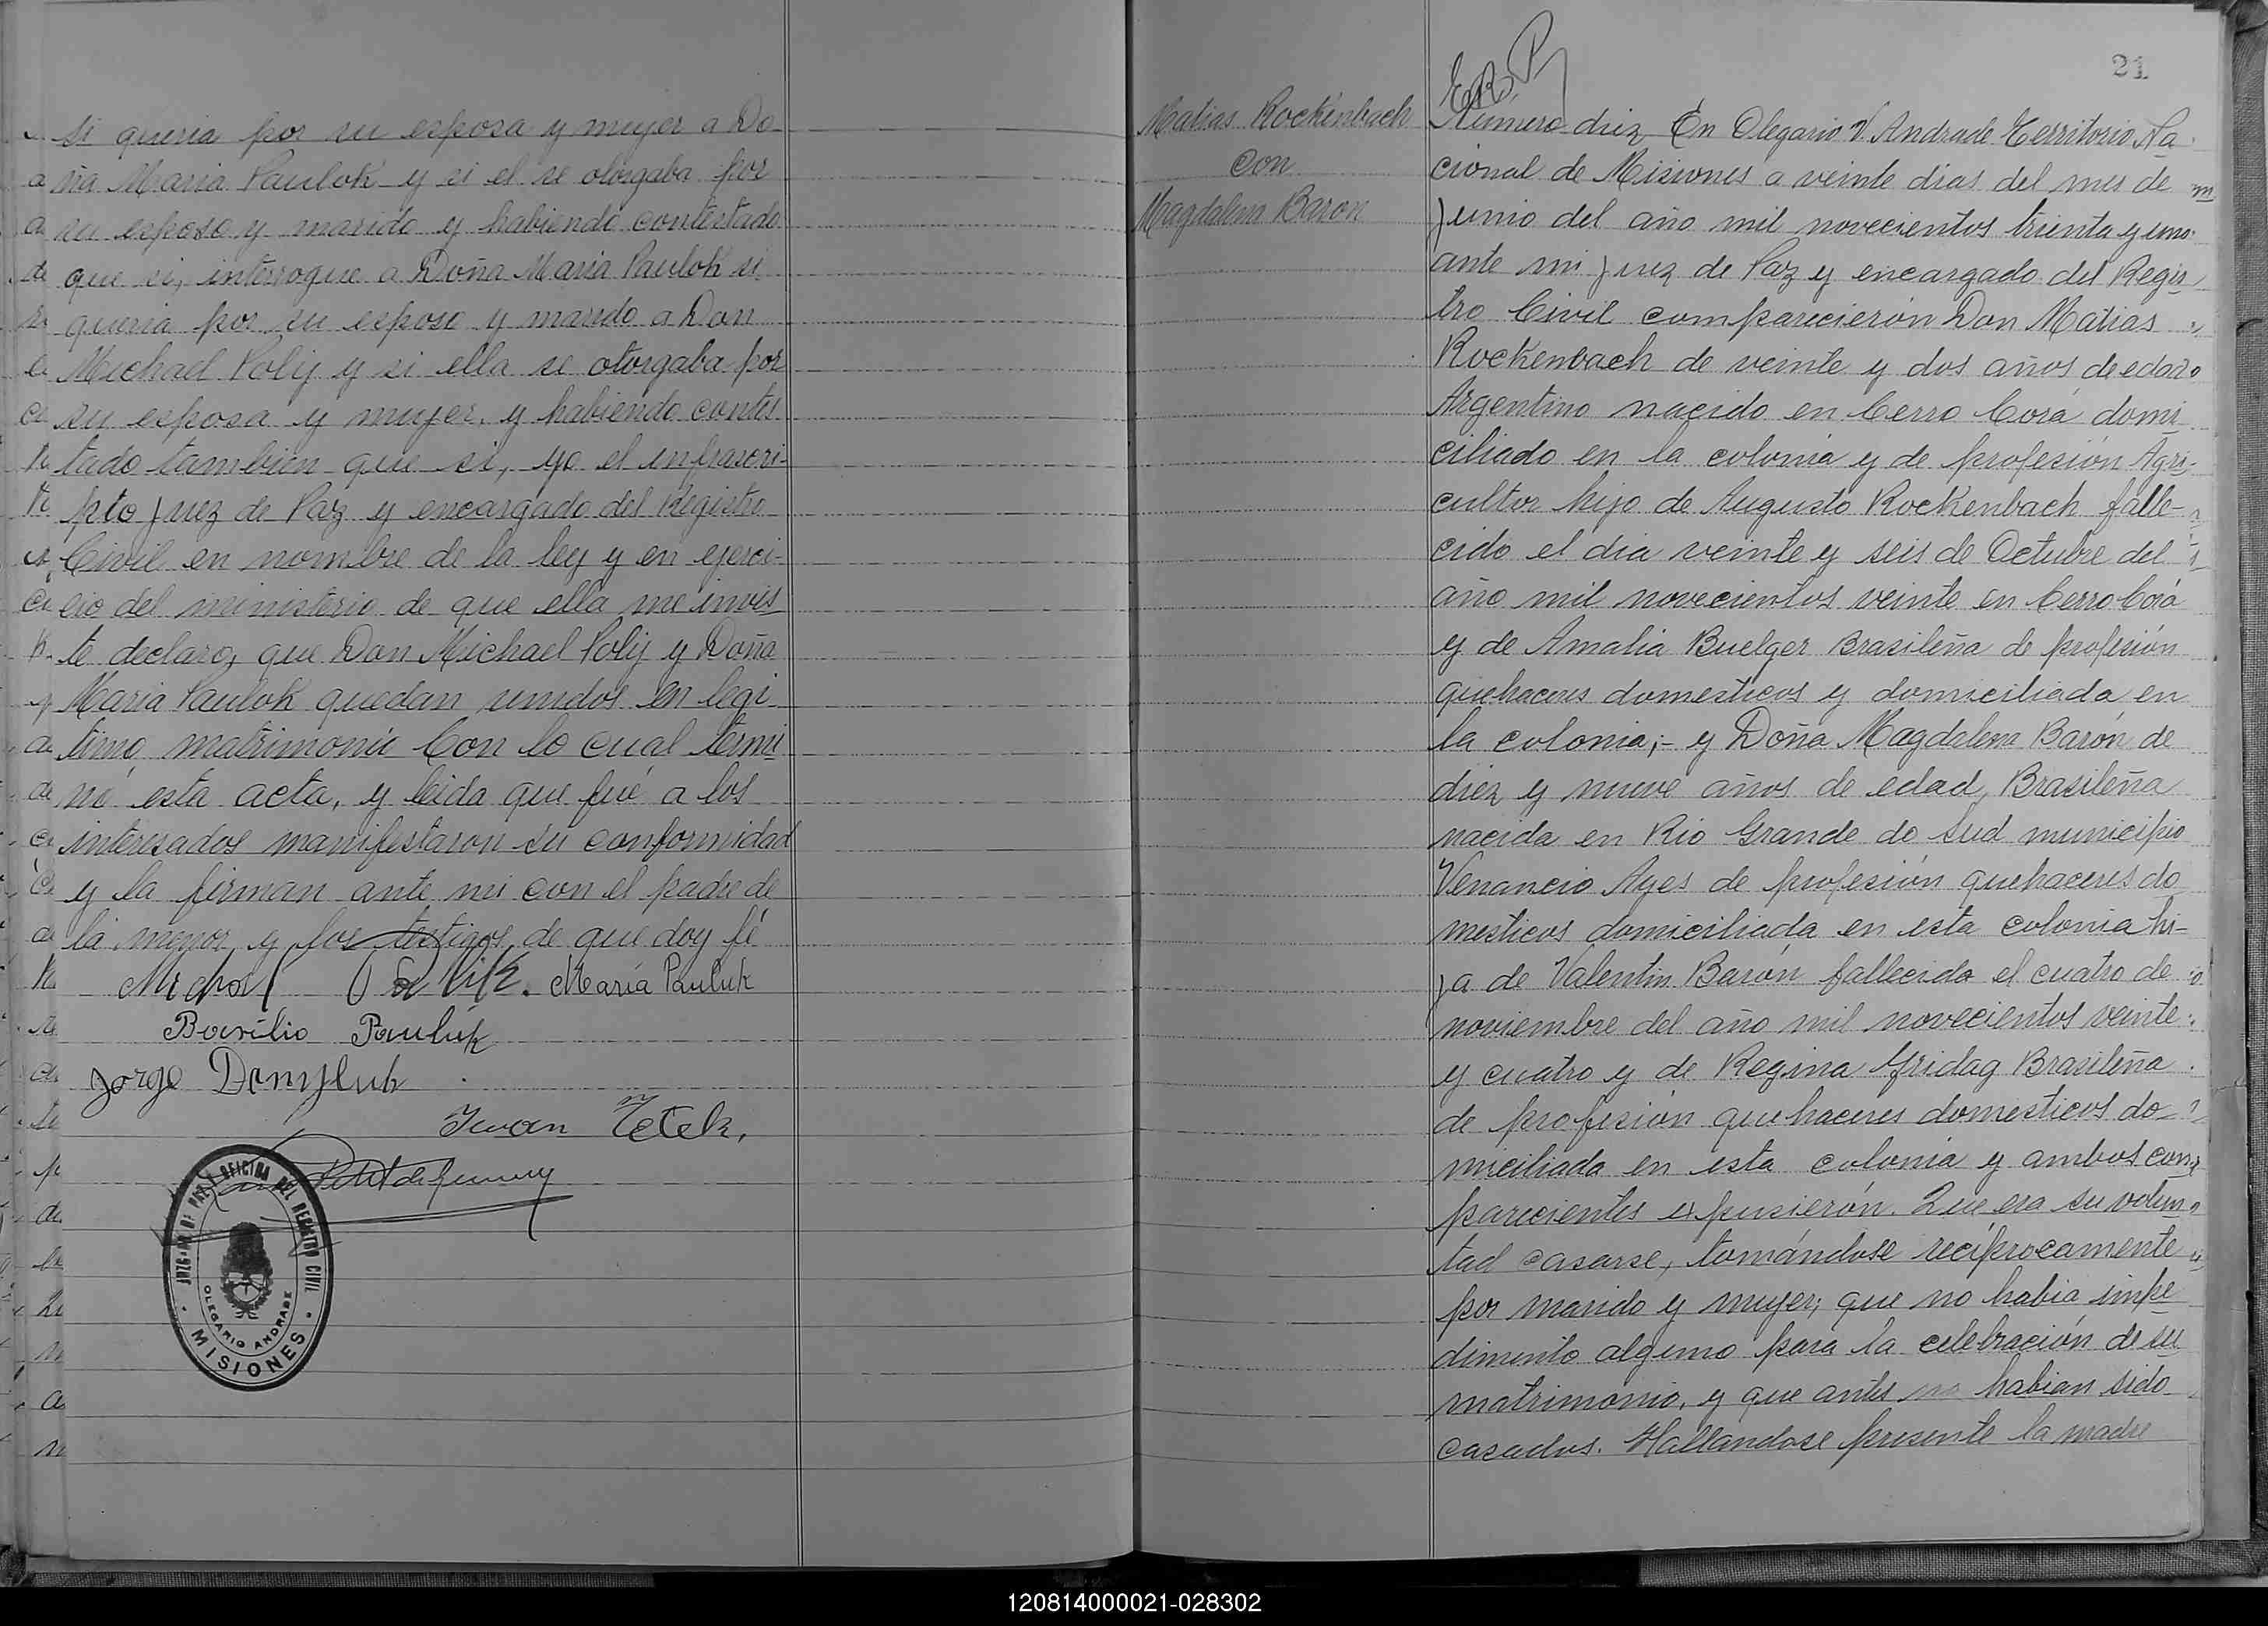 si queria por su esposa y mujer a Do
ña Maria Paulok y si el se otorgaba por
su esposo y marido y habiendo contestado
que si, interrogue a Doña Maria Paulok si
queria por su esposo y marido a Don
Michael Polij y si ella se otorgaba por
su esposa y mujer, y habiendo contes
tado tambien que si, yo el infrascri-
pto Juez de Paz y encargado del Registro
Civil en nombre de la ley y en ejerci-
cio del ministerio de que ella me invis
te declaro, que Don Michael Polij y Doña
Maria Paulok quedan unidos en legi
timo matrimonio Con lo cual termi
nó esta acta, y leida que fué a los
interesados manifestaron su conformidad
y la firman ante mi con el padre de
la menor y los testigos de que doy fé
María Pauluk
Basilio Pauluk
Jorge Danyluk
Iwan Tetek,
JUZGADO DE PAZ Y OFICINA DEL REGISTRO CIVIL
OLEGARIO ANDRADE
MISIONES
21
Matias Rockenbach
con
Magdalena Baron
Número diez En Olegario V. Andrade Territorio Na
cional de Misiones a veinte dias del mes de
Junio del año mil novecientos trienta y uno
ante mi Juez de Paz y encargado del Regis
tro Civil comparecierón Don Matias
Rockenbach de veinte y dos años de edad
Argentino nacido en Cerro Corá domi
ciliado en la colonia y de profesión Agri-
cultor hijo de Augusto Rockenbach falle-
cido el dia veinte y seis de Octubre del
año mil novecientos veinte en Cerro Corá
y de Amalia Buelger Brasileña de profesión
quehaceres domesticos y domiciliada en
la colonia;- y Doña Magdalena Barón de
diez y nueve años de edad, Brasileña
nacida en Rio Grande do Sud municipio
Venancio Ayes de profesión quehaceres do
mesticos domiciliada en esta colonia hi-
ja de Valentin Barón fallecido el cuatro de
noviembre del año mil novecientos veinte
y cuatro y de Regina Fridag Brasileña
de profesión quehaceres domesticos do-
miciliada en esta colonia y ambos com
parecientes expusierón. Que era su volun
tad casarse, tomándose recíprocamente
por marido y mujer; que no habia impe
dimento alguno para la celebración de su
matrimonio, y que antes no habian sido
casados. Hallandose presente la madre
120814000021-028302